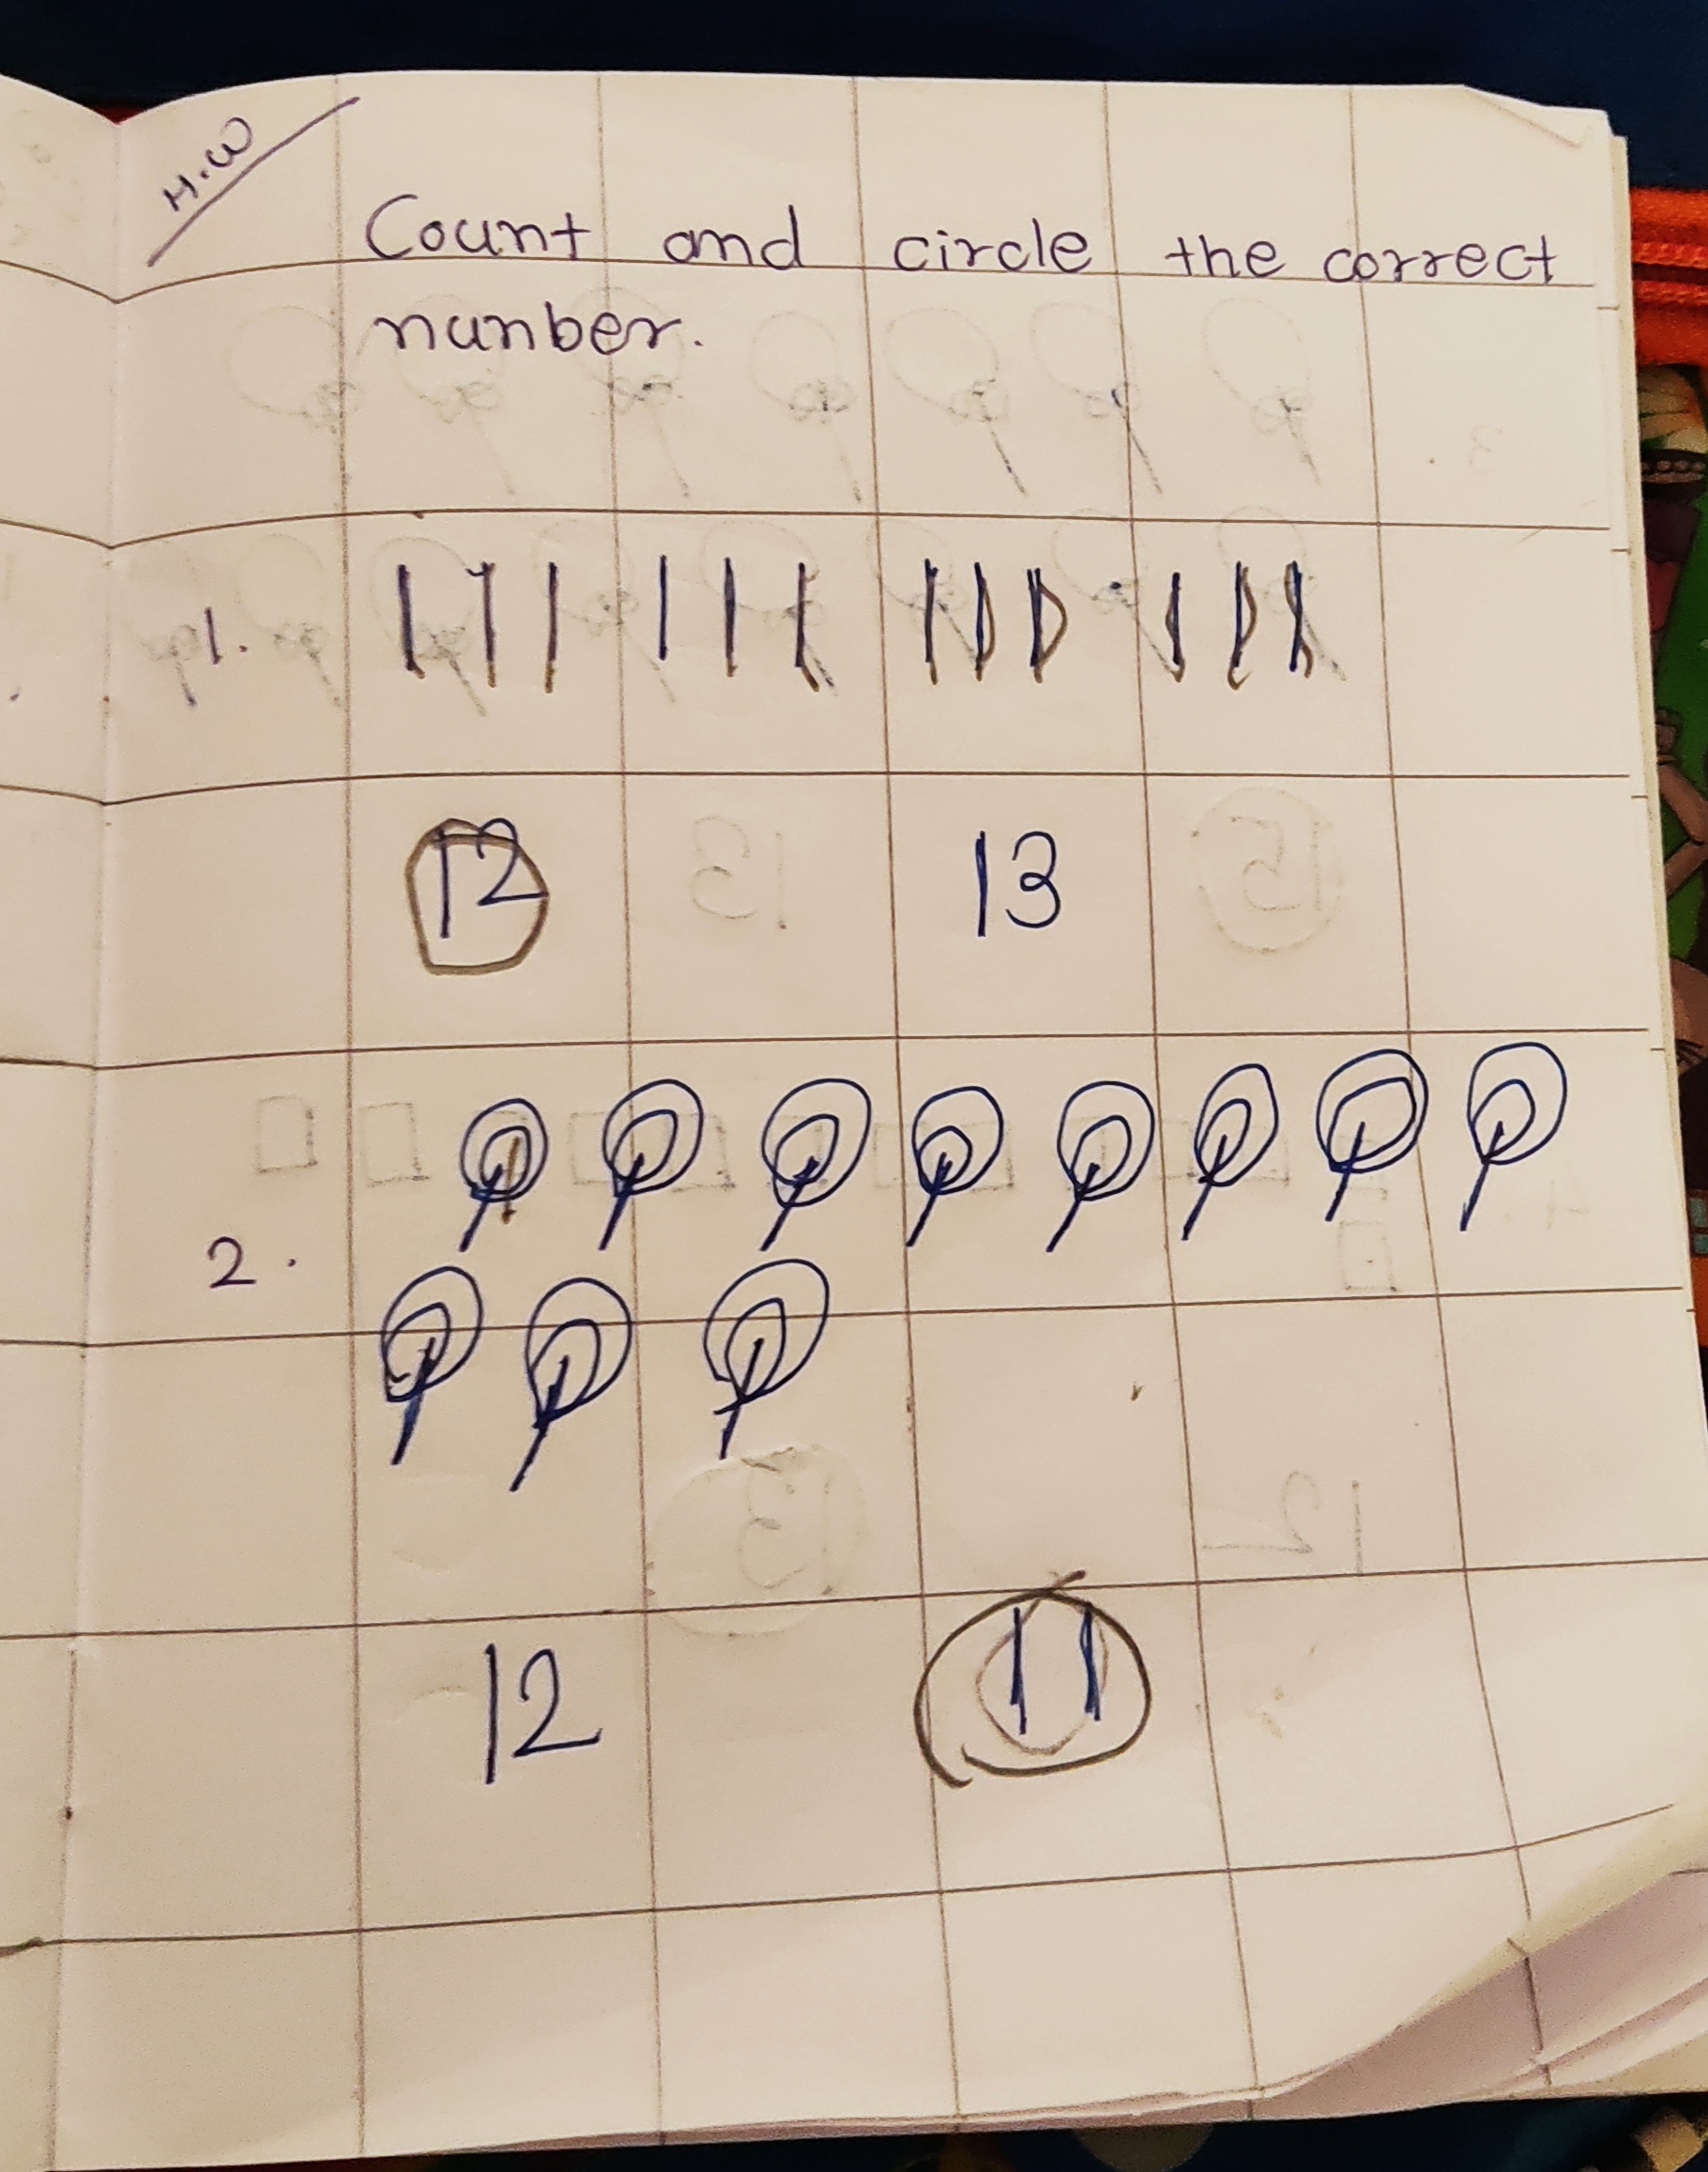 H.W
Count and circle the correct
nunber.
1.
12 13
2.
12 11